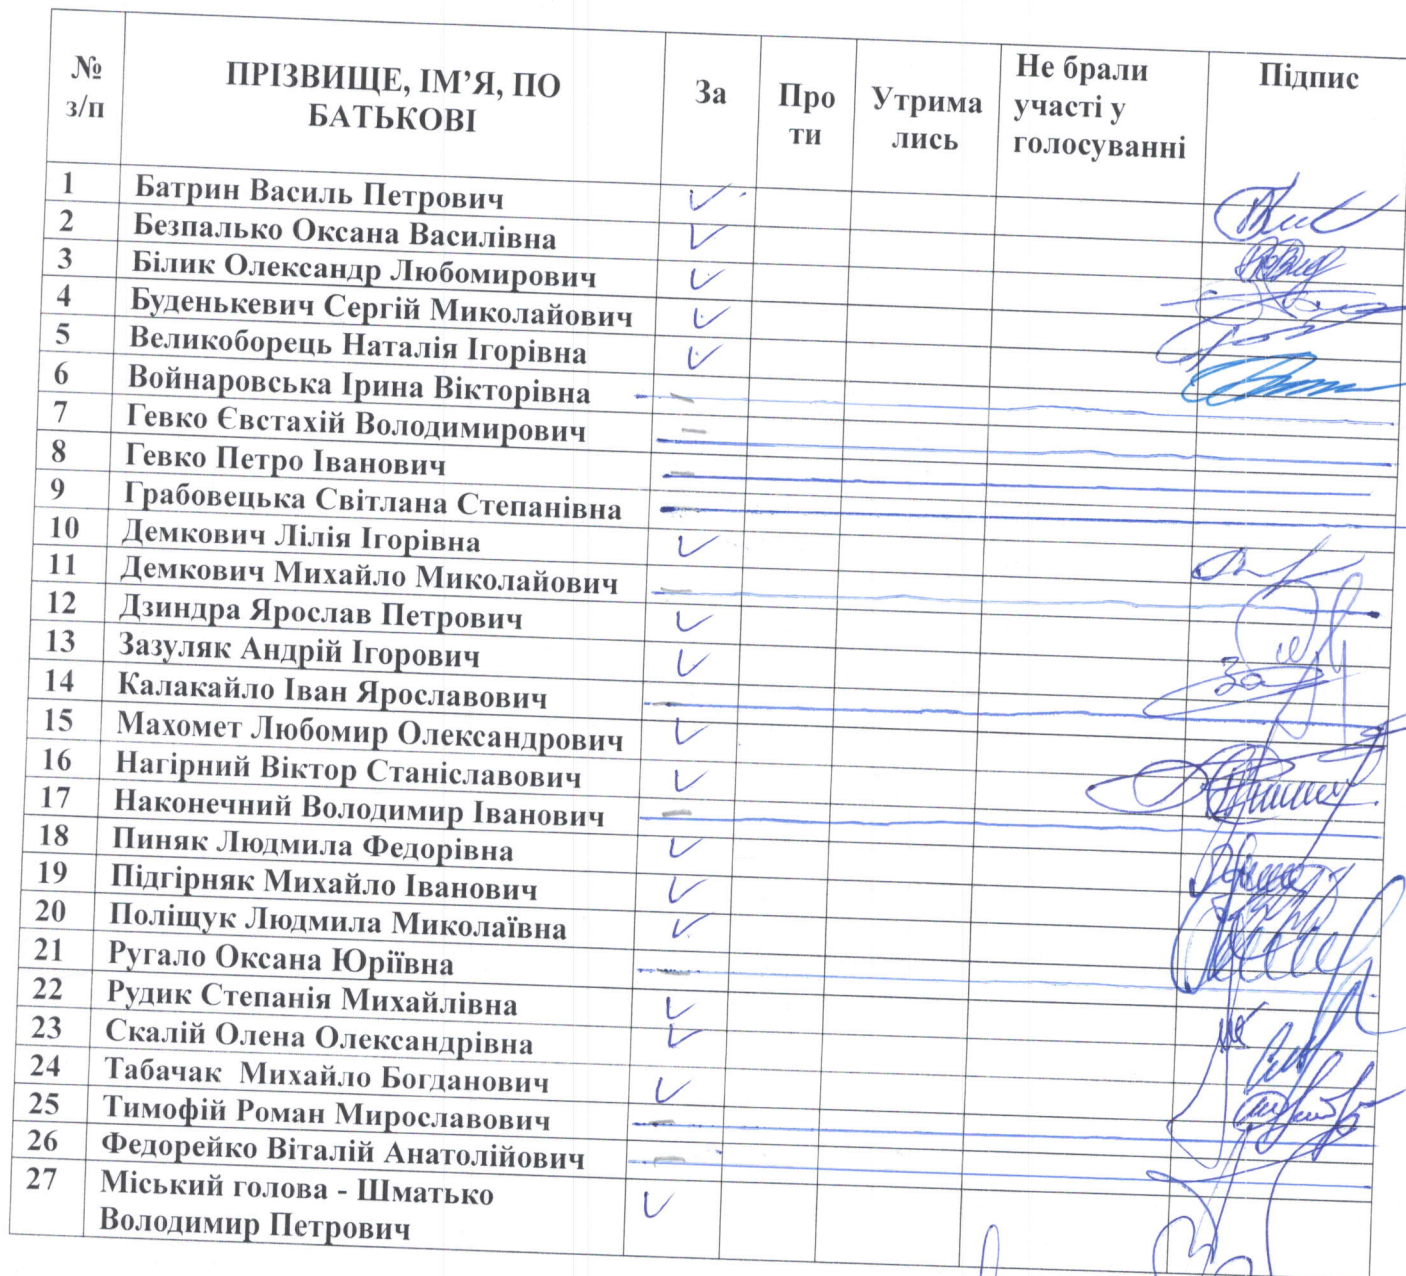 № з/п ПРІЗВИЩЕ, ІМ’Я, ПО БАТЬКОВІ За Про ти Утрима лись Не брали участі у голосуванні Підпис
1 Батрин Василь Петрович ✓
2 Безпалько Оксана Василівна ✓
3 Білик Олександр Любомирович ✓
4 Буденькевич Сергій Миколайович ✓
5 Великоборець Наталія Ігорівна ✓
6 Войнаровська Ірина Вікторівна
7 Гевко Євстахій Володимирович
8 Гевко Петро Іванович
9 Грабовецька Світлана Степанівна
10 Демкович Лілія Ігорівна ✓
11 Демкович Михайло Миколайович
12 Дзиндра Ярослав Петрович ✓
13 Зазуляк Андрій Ігорович ✓
14 Калакайло Іван Ярославович
15 Махомет Любомир Олександрович ✓
16 Нагірний Віктор Станіславович ✓
17 Наконечний Володимир Іванович
18 Пиняк Людмила Федорівна ✓
19 Підгірняк Михайло Іванович ✓
20 Поліщук Людмила Миколаївна ✓
21 Ругало Оксана Юріївна
22 Рудик Степанія Михайлівна ✓
23 Скалій Олена Олександрівна ✓
24 Табачак Михайло Богданович ✓
25 Тимофій Роман Мирославович
26 Федорейко Віталій Анатолійович
27 Міський голова - Шматько
Володимир Петрович ✓